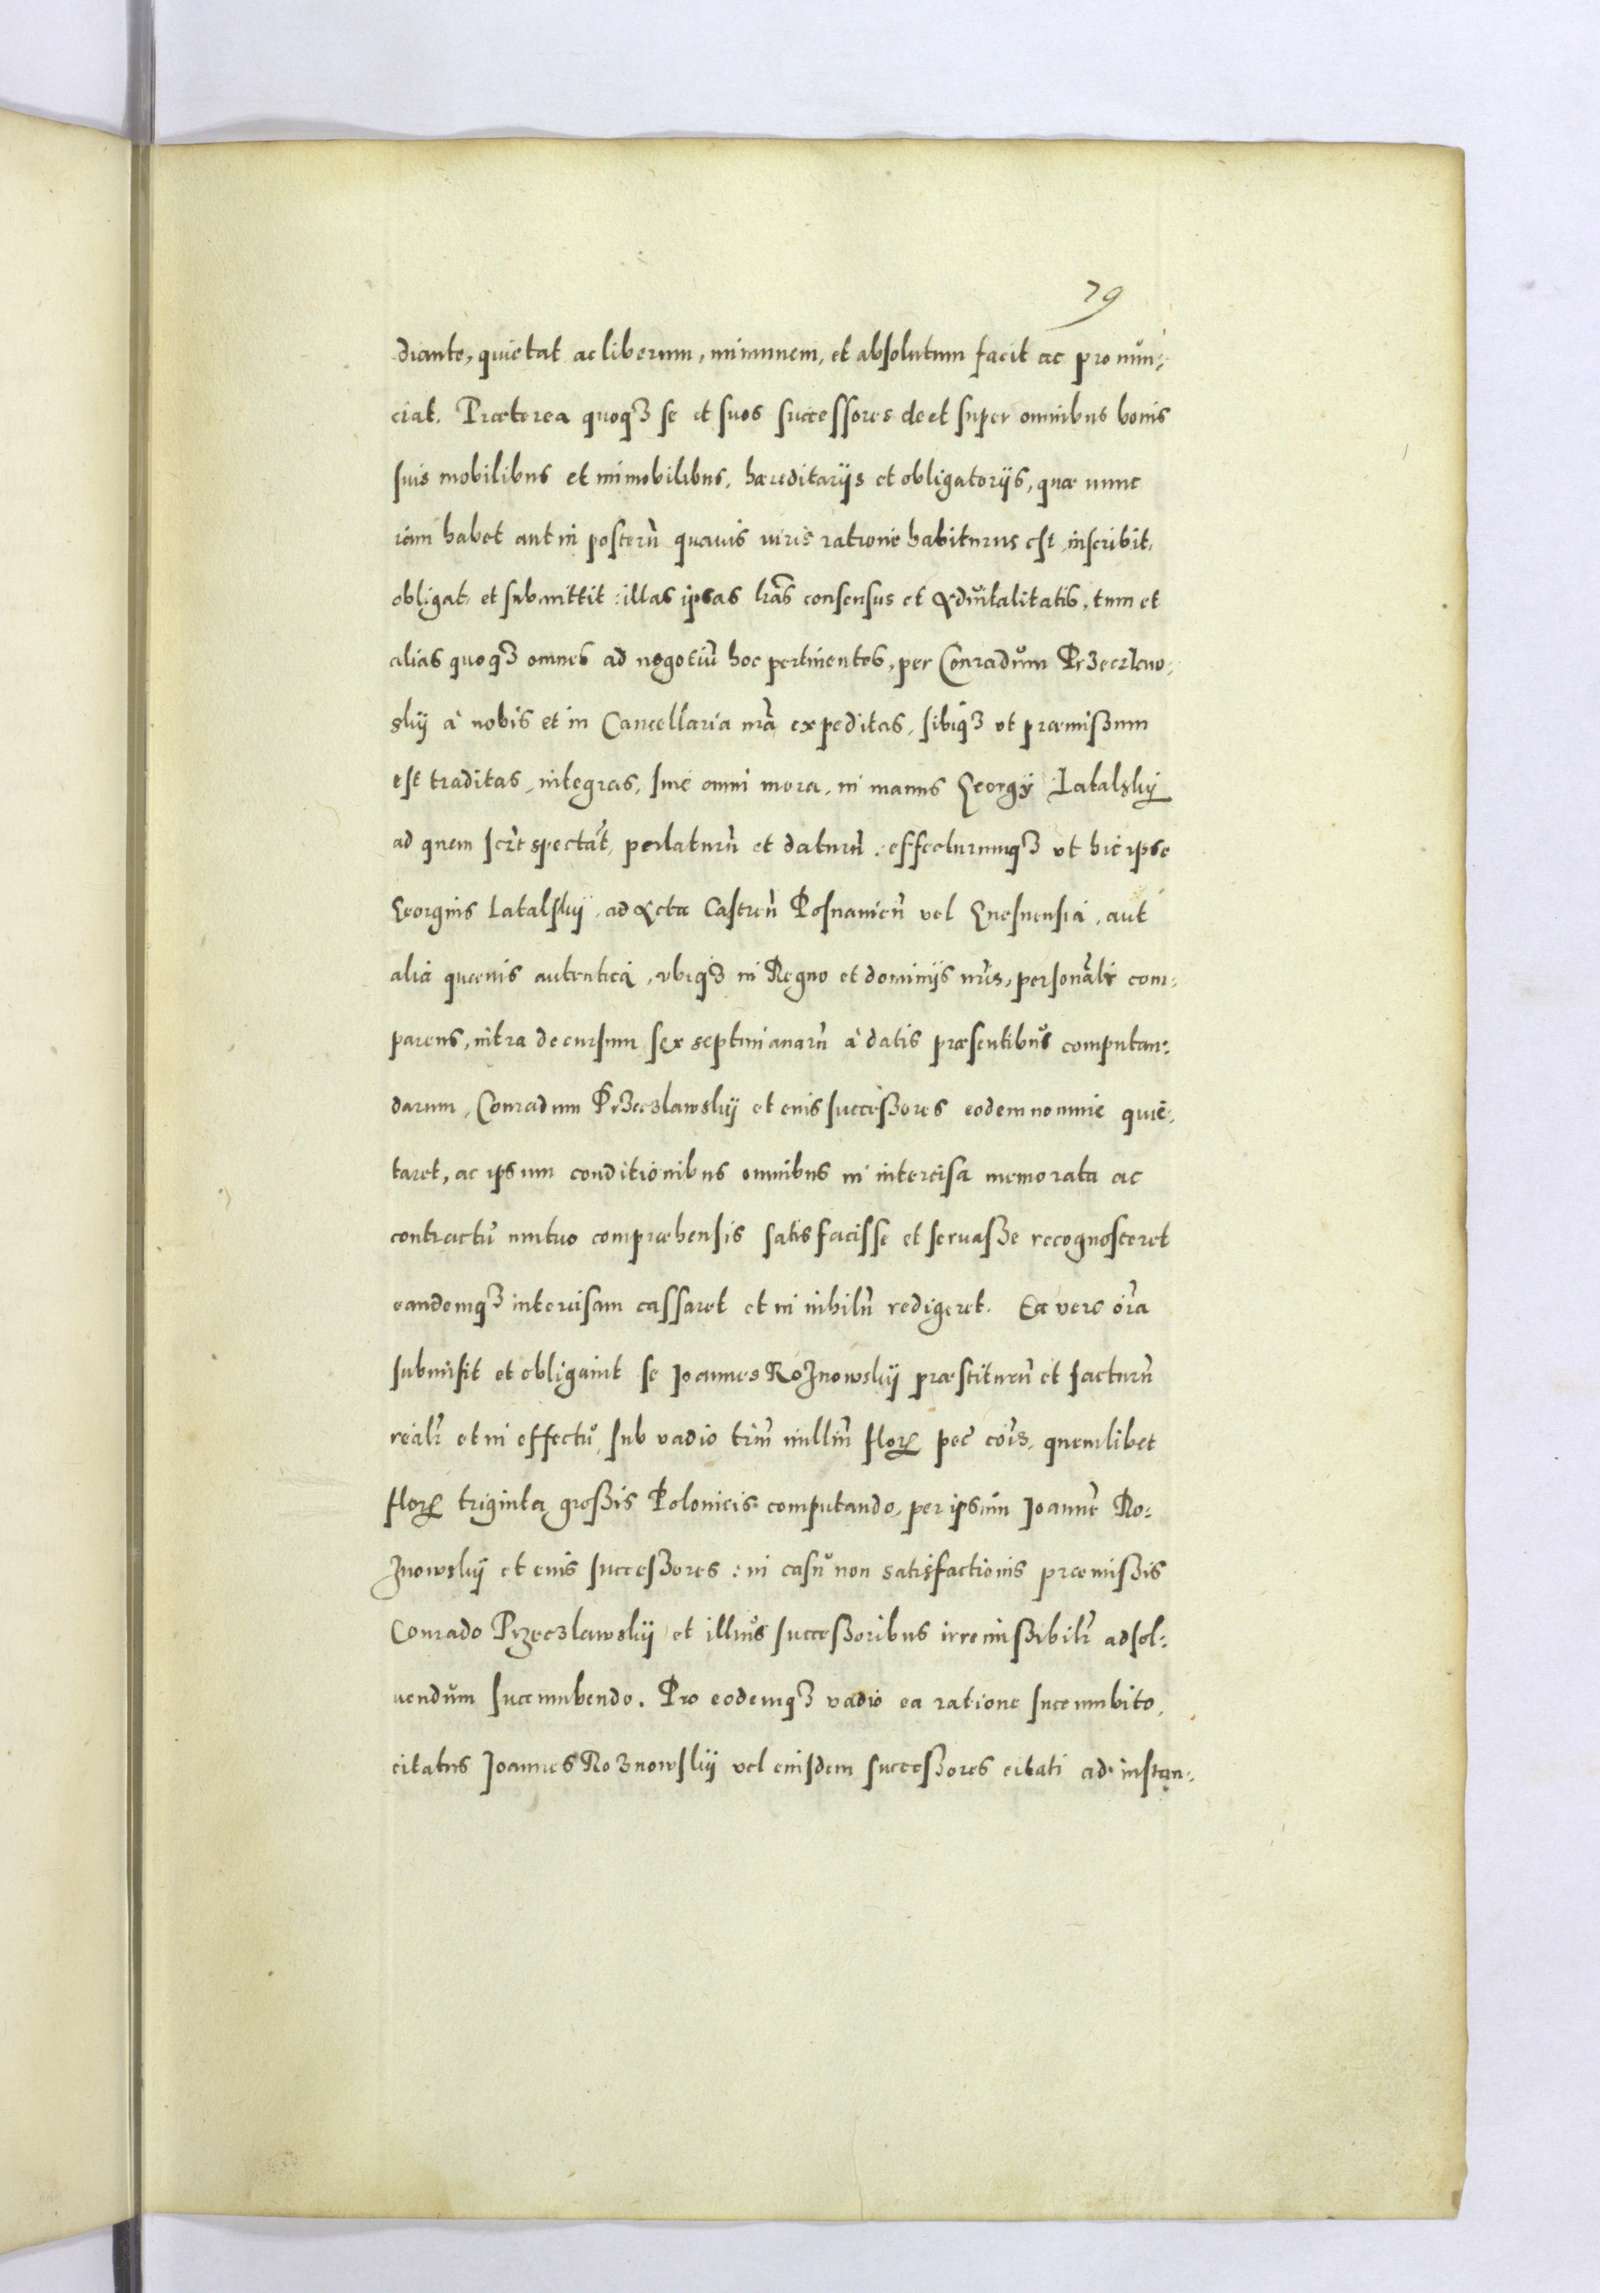 79
diante, quietat ac liberum, immunem, et absolutum facit ac pronun:
ciat. Præterea quoqȝ se et suos successores de et super omnibus bonis
suis mobilibus et immobilibus, hæreditarijs et obligatorijs, quæ nunc
iam habet aut in posterũ quauis iuris ratione habiturus est, inscribit,
obligat, et submittit: illas ipsas lr̃as consensus et aduitalitatis, tum et
alias quoqȝ omnes ad negotiũ hoc pertinentes, per Conradum Przeczlaw:
skij à nobis et in Cancellaria nrã expeditas, sibiqȝ vt præmißum
est traditas, integras, sine omni mora, in manus Georgij Latalskij
ad quem spectãt, perlaturũ et daturũ: effecturumqȝ vt hic ipse
Georgius Latalskij, ad Acta Castreñ Posnanieñ vel Gnesnensia, aut
alia quæuis autentica, vbiqȝ in Regno et dominijs nr̃is, personalr̃ com:
parens, intra decursum sex septimanarũ à datis præsentibus computan:
darum, Conradum Przeczlawskij et eius succeßores eodem nomine quie:
taret, ac ipsum conditionibus omnibus in intercisa memorata ac
contractu mutuo compræhensis satisfacisse et seruaße recognosceret
eandemqȝ intercisam cassaret et in nihilũ redigeret. Ea vero oĩa
submisit et obligauit se Joannes Roznowskij præstiturũ et facturũ
realr̃ et in effectu, sub vadio triũ milliũ floꝝ pec̃ cõis, quemlibet
floꝝ triginta großis Polonicis computando, per ipsum Joannẽ Ro:
znowskij et eius succeßores: in casu non satisfactionis præmißis
Conrado Przeczlawskij et illius succeßoribus irremißibilr̃ adsol:
uendum succumbendo. Pro eodemqȝ vadio ea ratione succumbito,
citatus Joannes Roznowskij vel eiusdem succeßores citati ad instan: